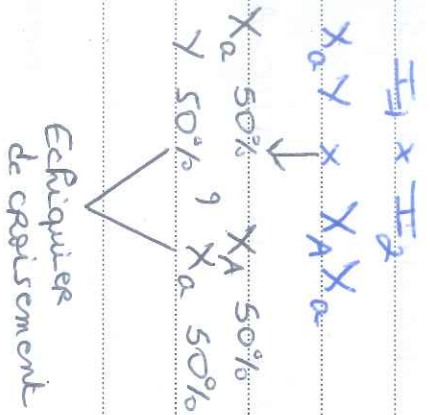 I₁ x I₂
XaY x XAXa
Xa 50% XA 50%
Y 50% , Xa 50%
Echiquier
de croisement